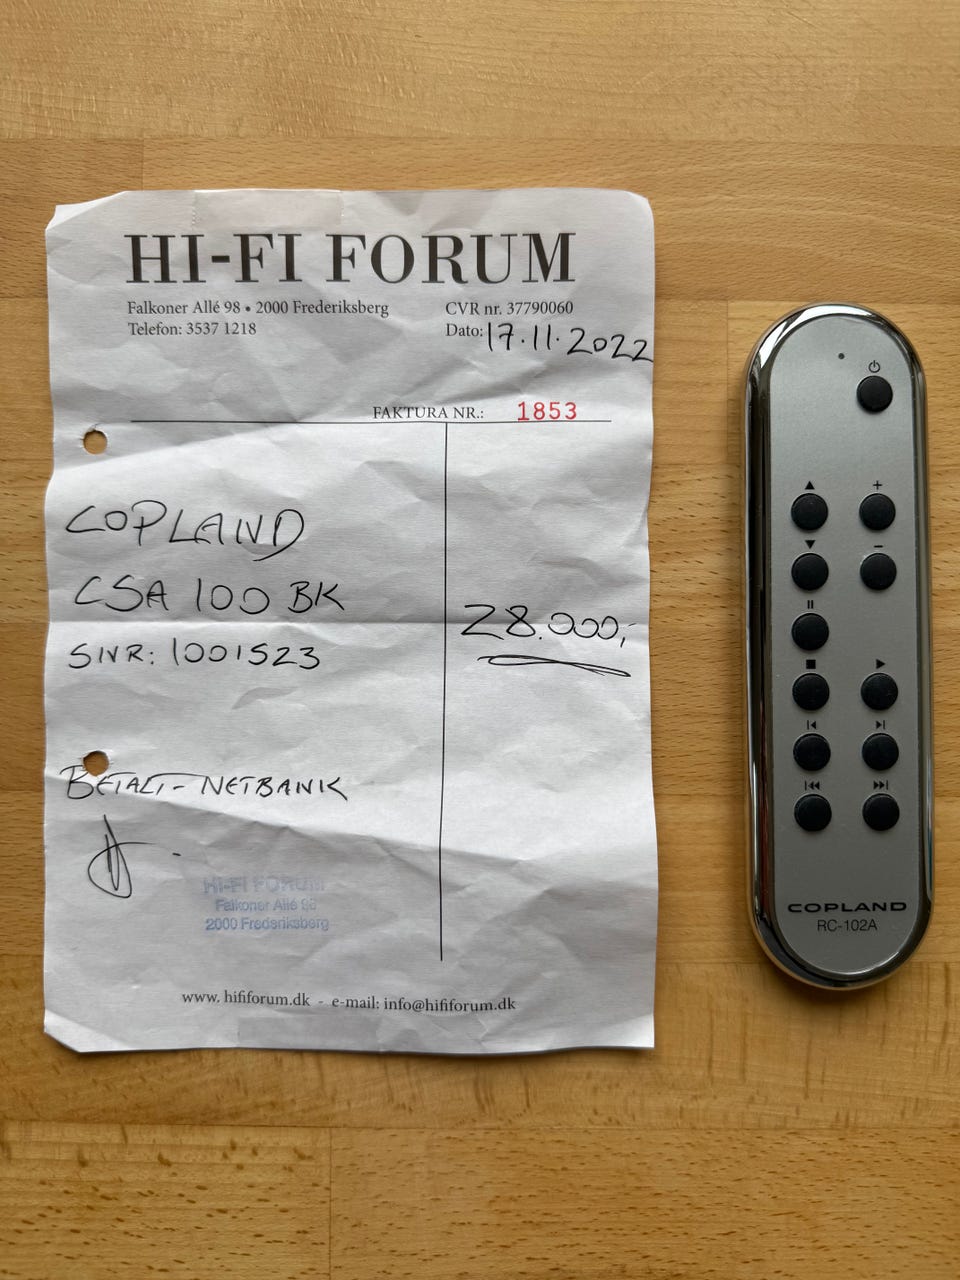 HI-FI FORUM
Falkoner Allé 98 • 2000 Frederiksberg
Telefon: 3537 1218
CVR nr. 37790060
Dato: 17.11.2022
FAKTURA NR.: 1853
COPLAND
CSA 100 BK
SNR: 1001523
28.000,-
BETALT - NETBANK
HI-FI FORUM
Falkoner Allé 98
2000 Frederiksberg
www. hififorum.dk - e-mail: info@hififorum.dk
COPLAND
RC-102A